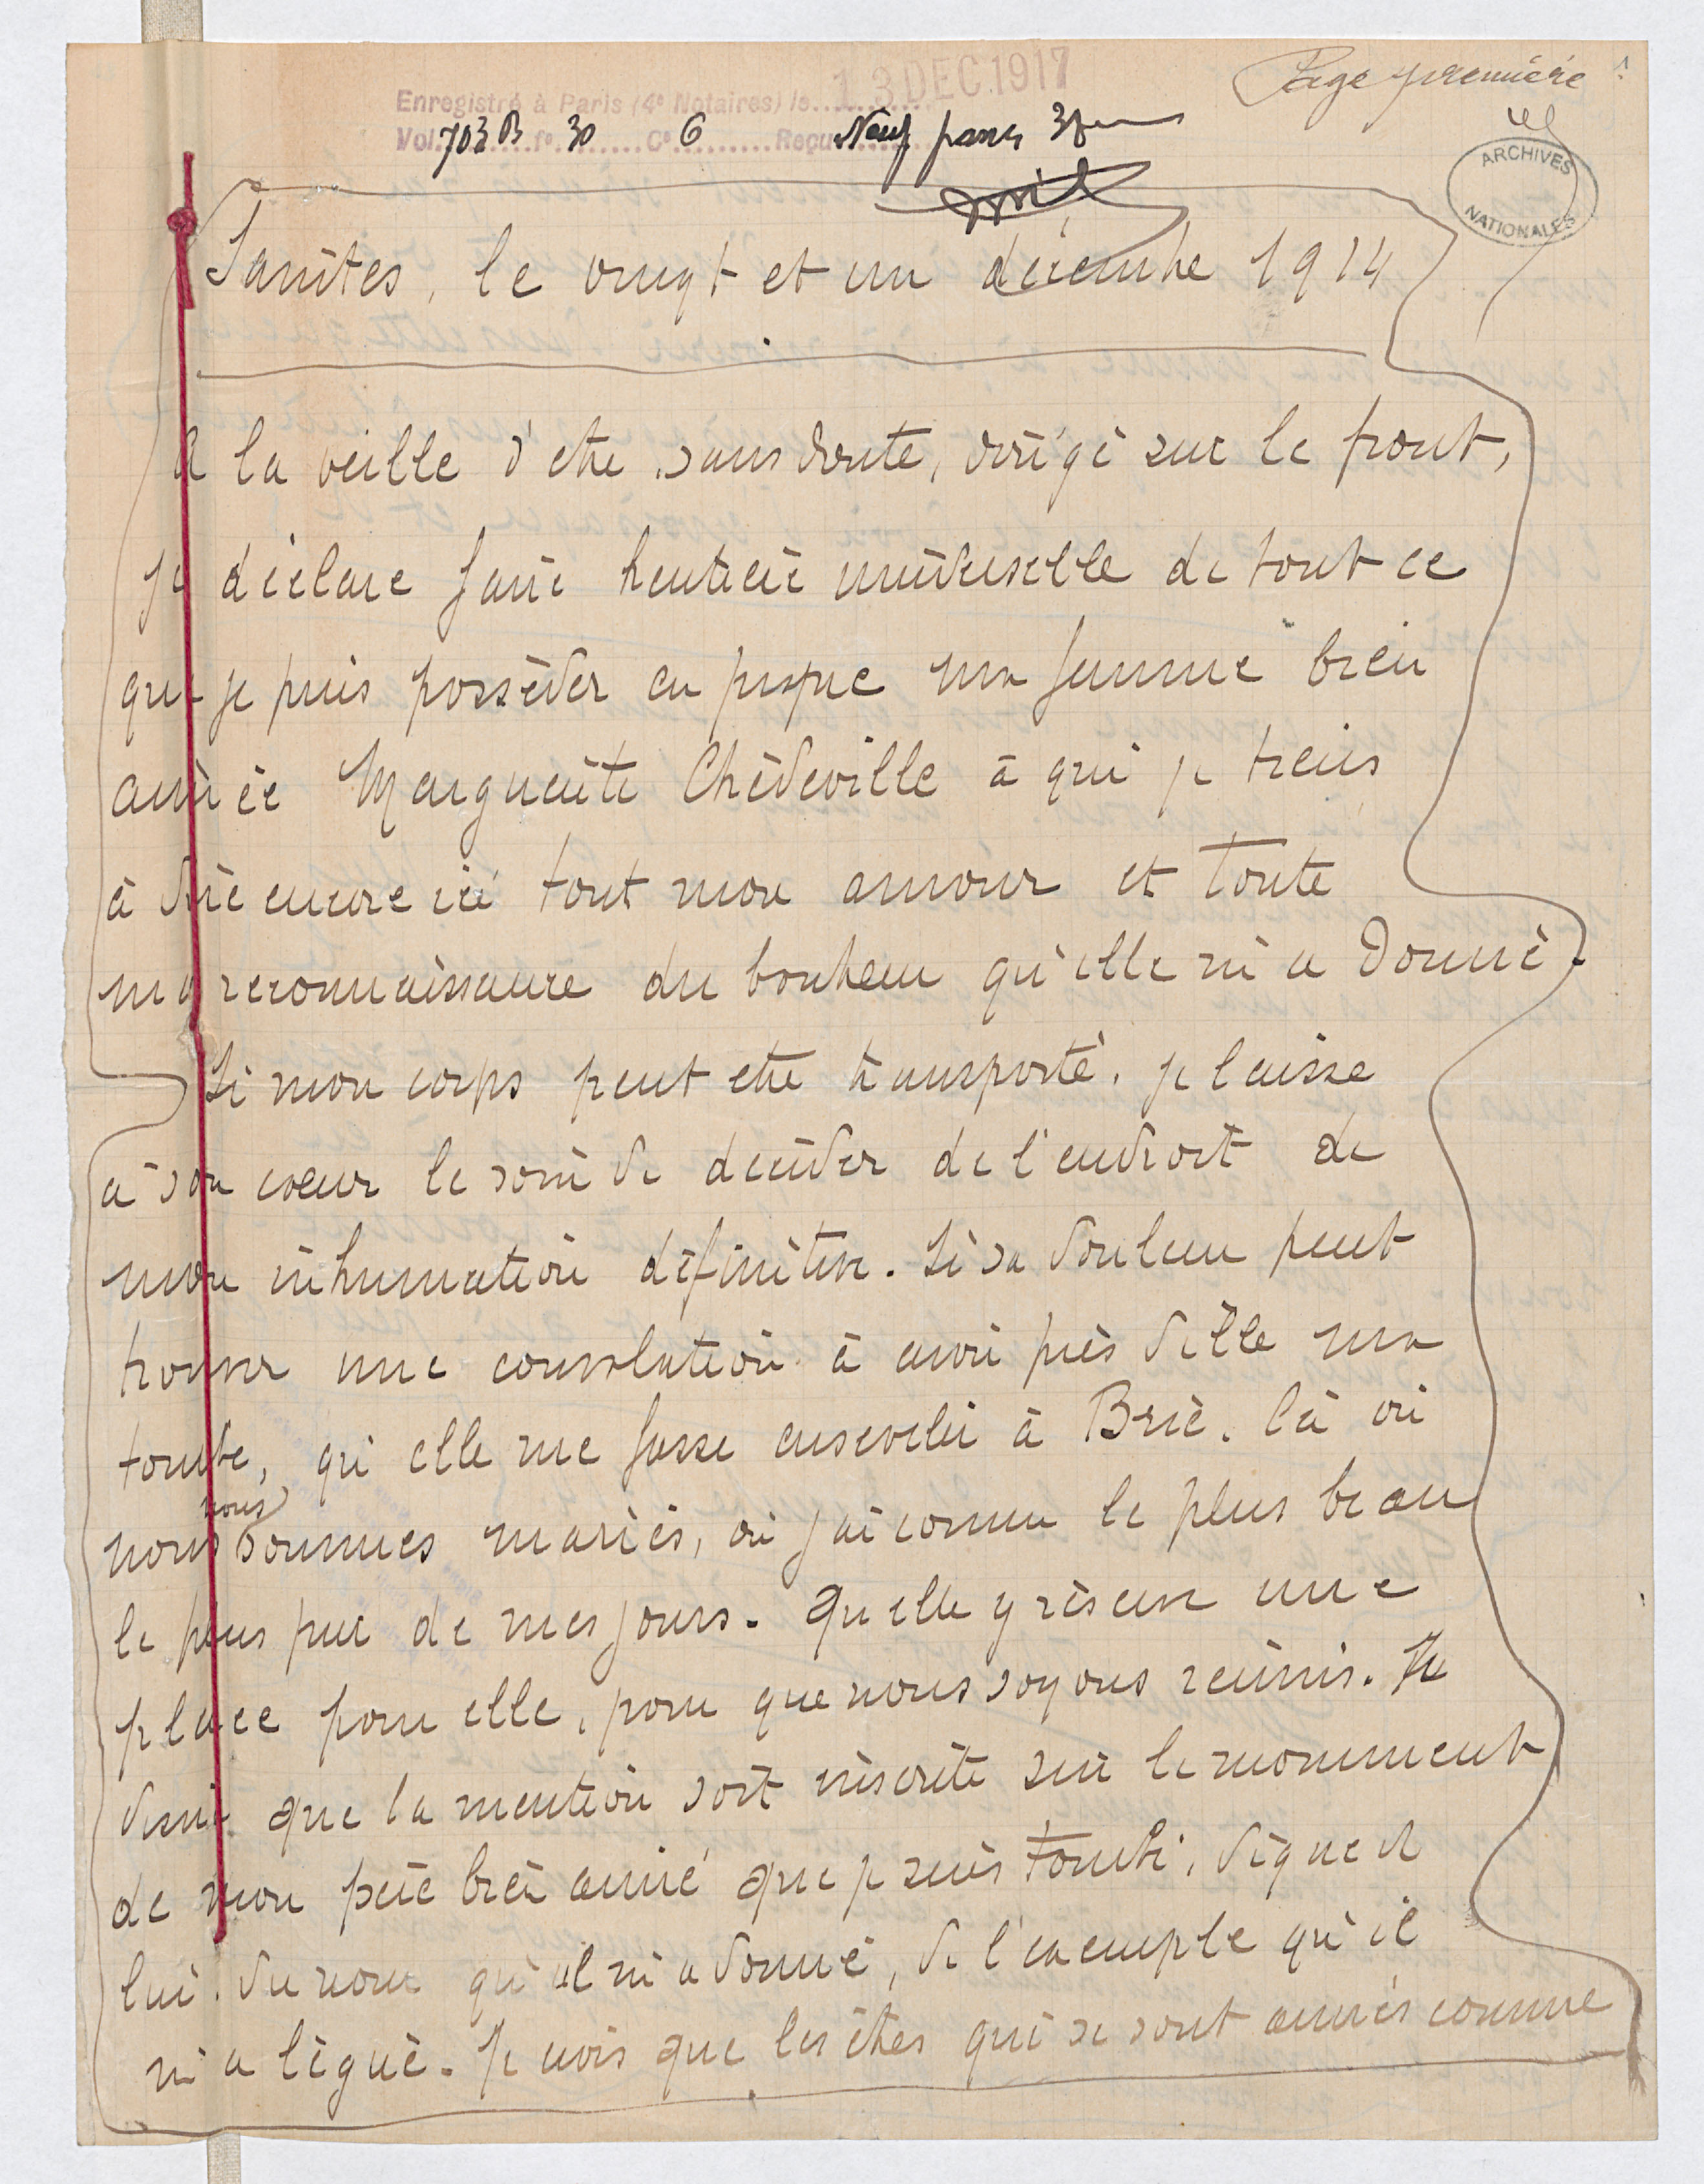 Page première
13 DEC 1917
Enregistré à Paris (4e Notaires) le
Vol. 703 B fo 30 Ce 6 Reçu Neuf francs 38
ARCHIVES
NATIONALES
le vingt et un décembre 1914
A la veille d'etre, sans doute, dirigé sur le front,
je déclare faire héritière universelle de tout ce
que je puis posséder en propre ma femme bien
aimée Marguerite Chédeville à qui je tiens
à dire encore ici tout mon amour et toute
ma reconnaissance du bonheur qu'elle m'a donné.
Si mon corps peut etre transporté, je laisse
à son coeur le soin de décider de l'endroit de
mon inhumation définitive. Si sa douleur peut
trouver une consolation à avoir près d'elle ma
tombe, qu'elle me fasse ensevelir à Brie. là où
nous nous sommes mariés, où j'ai connu le plus beau
le plus pur de mes jours. Qu'elle y réserve une
place pour elle, pour que nous soyons réunis. Je
désire que la mention soit inscrite sur le monument
de mon père bien aimé que je suis tombé, digne de
lui, du nom qu'il m'a donné, de l'exemple qu'il
m'a légué. Je crois que les êtres qui se sont aimés comme